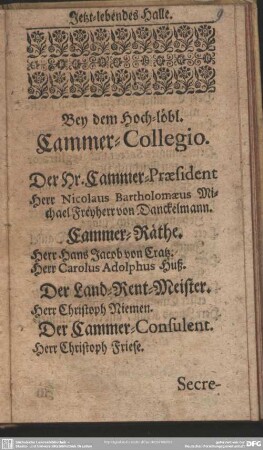 Jetzt-lebendes Halle.
Bey dem Hoch-löbl.
Cammer-Collegio.
Der Hr. Cammer-Præsident
Herr Nicolaus Bartholomæus Mi-
chael Freyherr von Danckelmann.
Cammer-Räthe.
Herr Hans Jacob von Cratz.
Herr Carolus Adolphus Huß.
Der Land-Rent-Meister.
Herr Christoph Niemen.
Der Cammer-Consulent.
Herr Christoph Friese.
Secre-
DFG